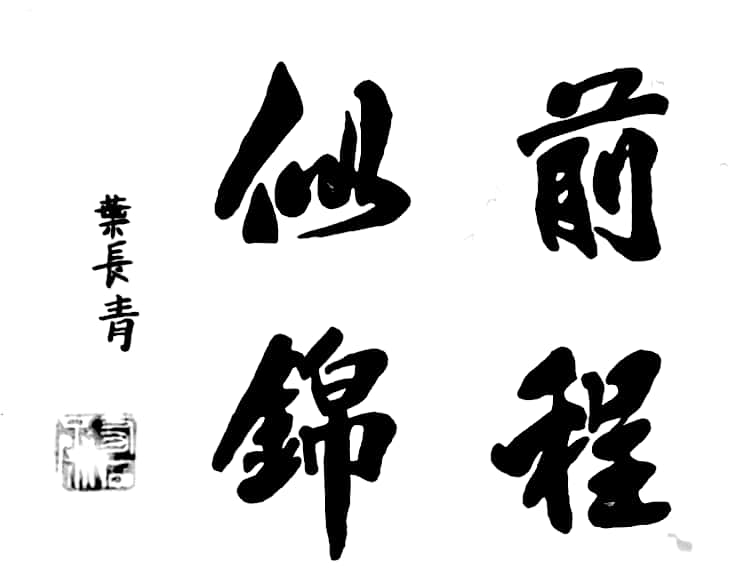 前程
似錦
葉長青